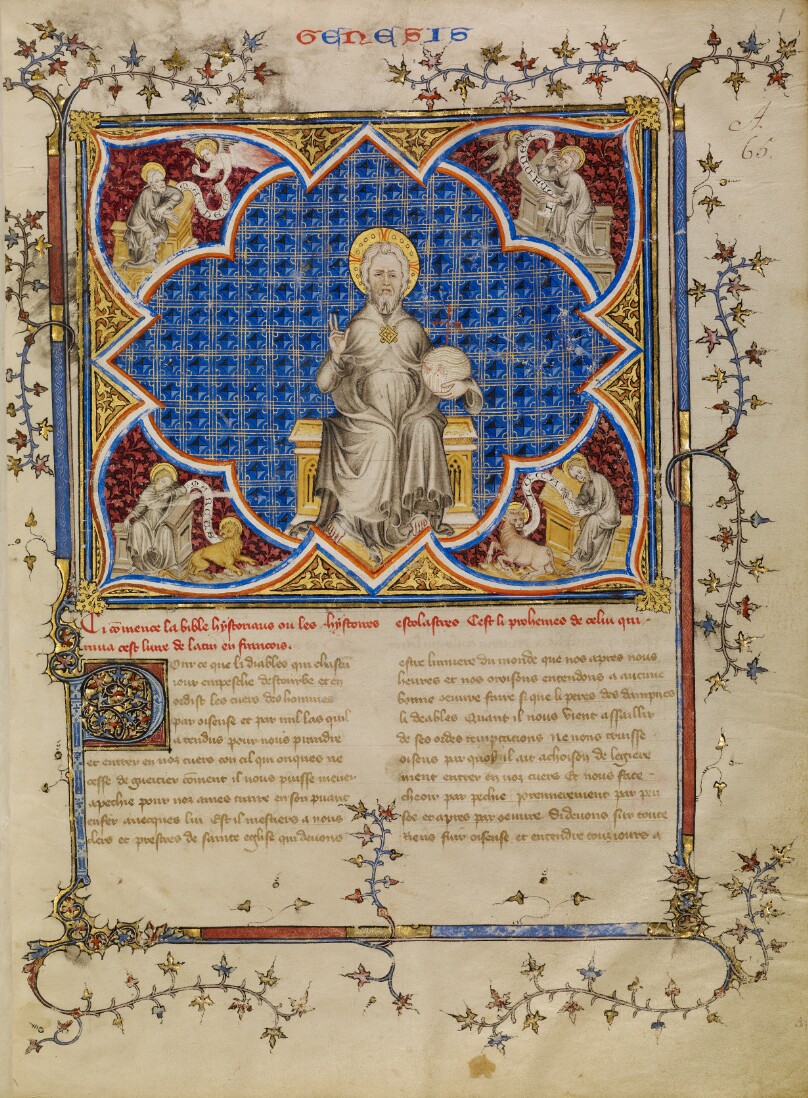 GENESIS
A.
65.
Ci comence la bible hystoriaus ou les hystores escolastres Cest li prohemes de celui qui
mua cest livre de latin en francois.
Pour ce que li diables qui chascun
iour empesche destourbe et en
ordist les cuers des hommes
par oiseuse et par mil las quil
a tendus pour nous prandre
et entrer en noz cuers con cil qui onques ne
cesse de guetier coment il nous puisse mener
a pechie pour noz ames traire en son puant
enfer avecques lui Est il mestiers a nous
clers et prestres de sainte eglise qui devons
estre lumiere du monde que nos apres nous
heures et nos oroisons entendons a aucune
bonne oeuvre faire si que li peres des dampnes
li deables Quant il nous vient assaillir
de ses ordes temptacions Ne nous truisse
oiseus par quoy il ait achoison de legiere
ment entrer en noz cuers Et nous face
cheoir par pechie premierement par pen
see et apres par oeuvre Si devons sur toute
riens fuir oiseuse et entendre touziours a